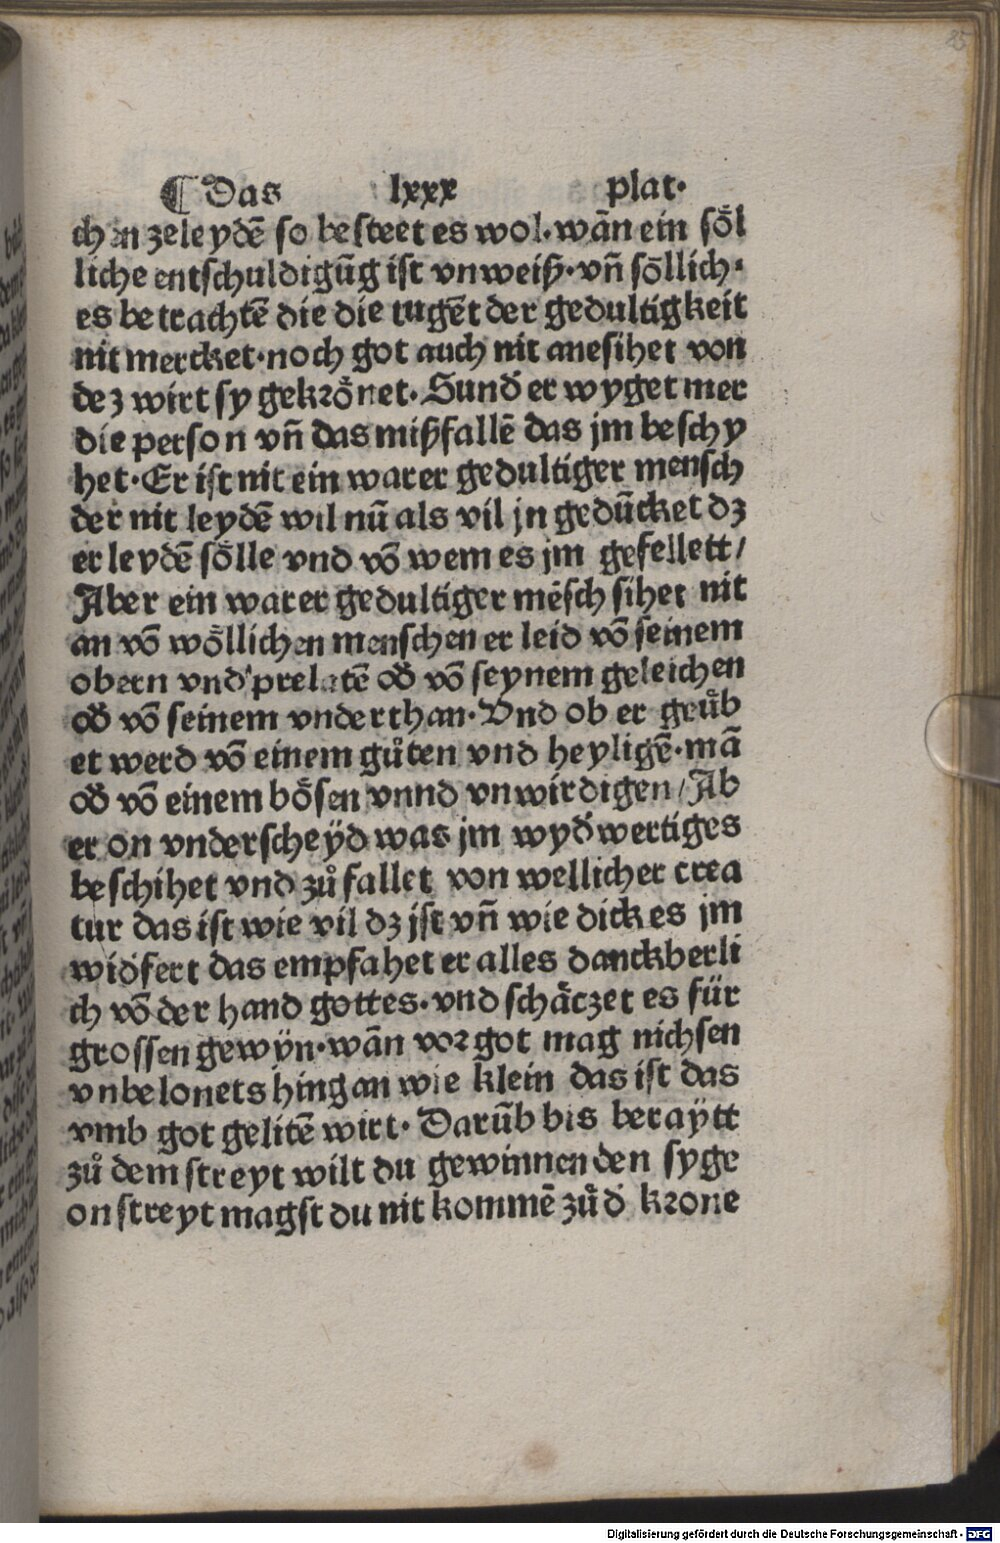 25
¶ Das lxxx plat·
ch an zeleydẽ so besteet es wol·wãn ein söl
liche entschuldigũg ist vnweiß·vñ söllich·
es betrachtẽ die die tugẽt der gedultigkeit
nit mercket·noch got auch nit anesihet von
dez wirt sy gekrönet·Sund̕ er wyget mer
die person vñ das mißfallẽ das jm beschy
het·Er ist nit ein warer gedultiger mensch
der nit leydẽ wil nũ als vil jn gedũcket dz
er leydẽ sölle vnd võ wem es jm gefellett/
Aber ein warer gedultiger mẽsch sihet nit
an võ wöllichen menschen er leid võ seinem
obern vnd prelatẽ od̕ võ seynem geleichen
od̕ võ seinem vnderthan·Vnd ob er geuͤb
et werd võ einem guͦten vnd heyligẽ·mã
od̕ võ einem bösen vnnd vnwirdigen/Ab
er on vnderscheÿd was jm wyd̕wertiges
beschihet vnd zuͦfallet von wellicher crea
tur das ist wie vil dz jst vñ wie dick es jm
wid̕fert das empfahet er alles danckberli
ch võ der hand gottes·vnd schäczet es für
grossen gewÿn·wãn vor got mag nichsen
vnbelonets hingan wie klein das ist das
vmb got gelitẽ wirt·Darũb bis beraÿtt
zuͦ dem streyt wilt du gewinnen den syge
on streyt magst du nit kommẽ zuͦ d̕ krone
Digitalisierung gefördert durch die Deutsche Forschungsgemeinschaft - DFG